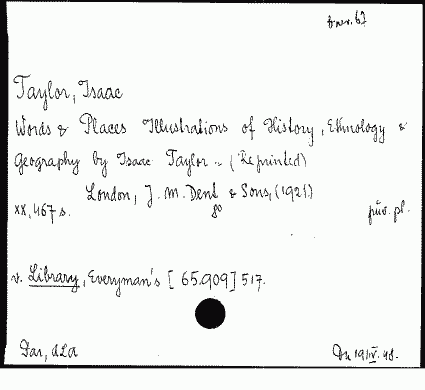 Taylor, Isaac
Words & Places Illustrations of History, Ethnology &
Geography by Isaac Taylor - (Reprinted)
London, J. M. Dent & Sons, (1921)
XX, 467 s. 8° pův. pl.
v. Library, Everyman's [65.909] 517.
Dar,